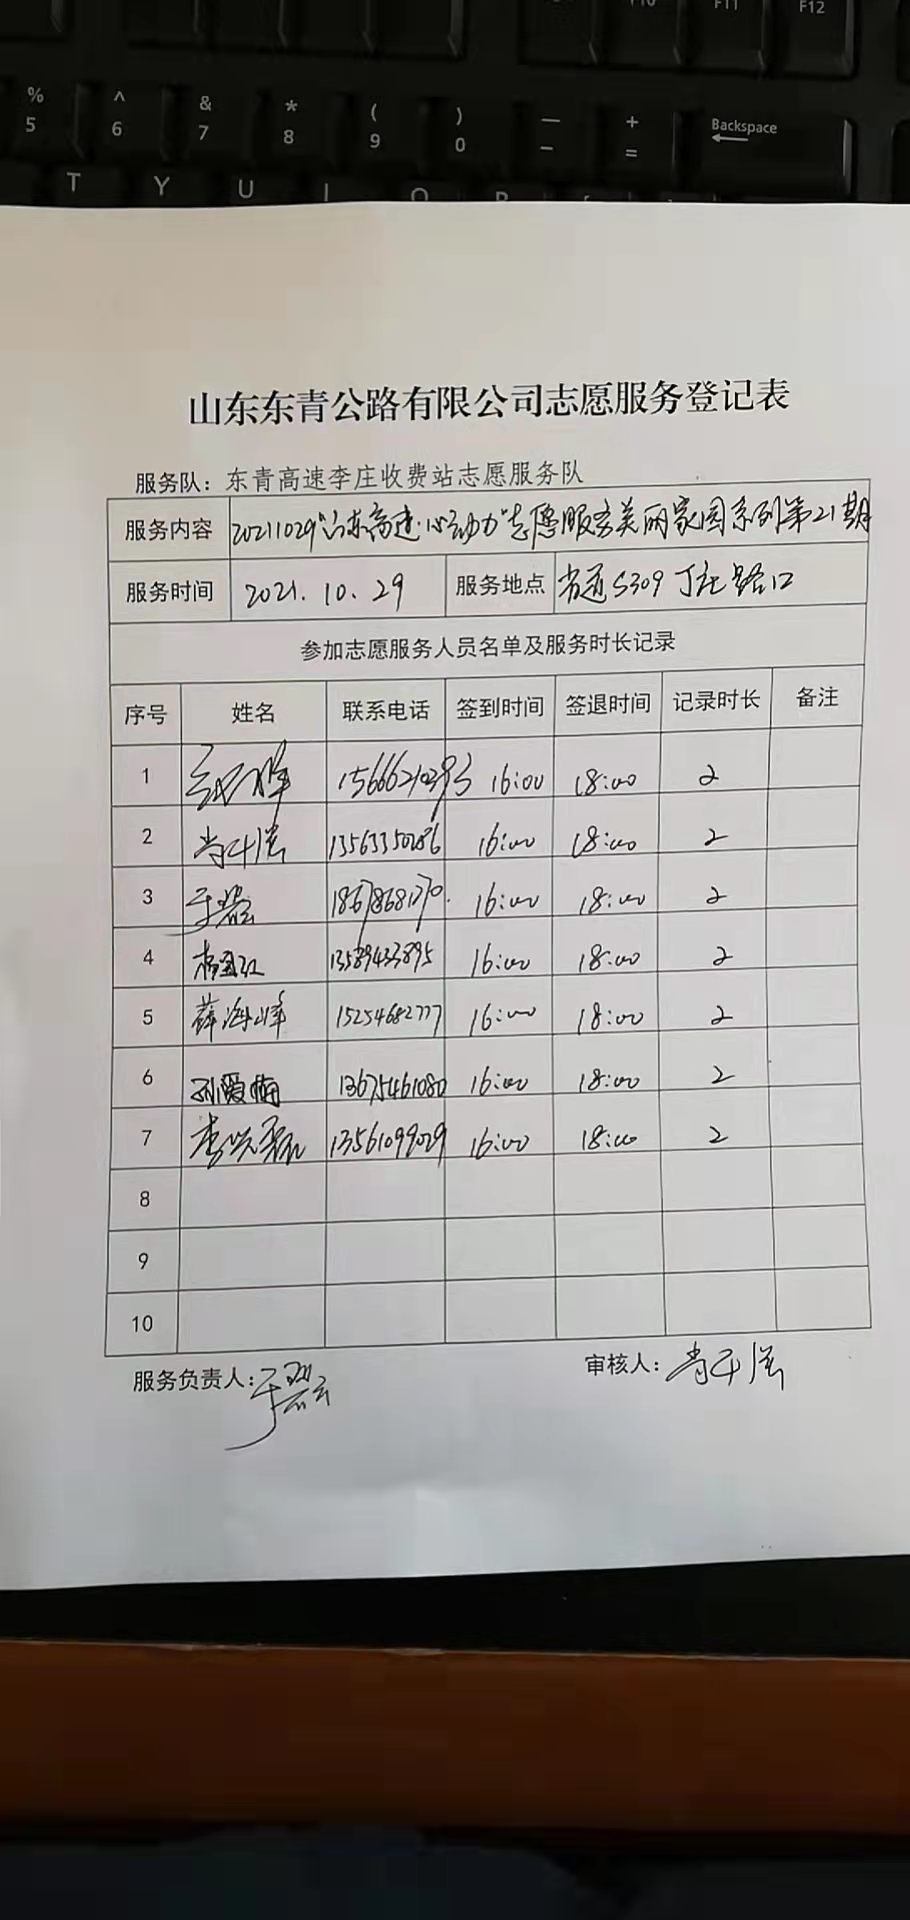 F11 F12
% ^ & * ( ) — + Backspace
5 6 7 8 9 0 - =
T Y U I O P
山东东青公路有限公司志愿服务登记表
服务队：东青高速李庄收费站志愿服务队
服务内容 20211029“山东高速·心动力”志愿服务美丽家园系列第21期
服务时间 2021.10.29 服务地点 省道S309丁庄路口
参加志愿服务人员名单及服务时长记录
序号 姓名 联系电话 签到时间 签退时间 记录时长 备注
1 16:00 18:00 2
2 13563350286 16:00 18:00 2
3 于磊 16:00 18:00 2
4 13589433895 16:00 18:00 2
5 薛海峰 15254682777 16:00 18:00 2
6 孙爱梅 13675461080 16:00 18:00 2
7 13561099029 16:00 18:00 2
8
9
10
服务负责人： 审核人：